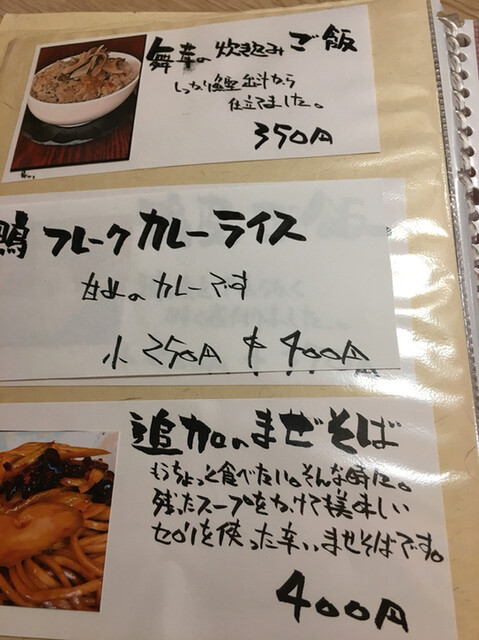 舞幸の炊き込みご飯
しっかり鰹出汁から
仕立てました。
350円
鴨フレークカレーライス
甘めのカレーです
小250円 中400円
追加のまぜそば
もうちょっと食べたい。そんな時に。
残ったスープをかけて美味しい
セリを使った辛いまぜそばです。
400円